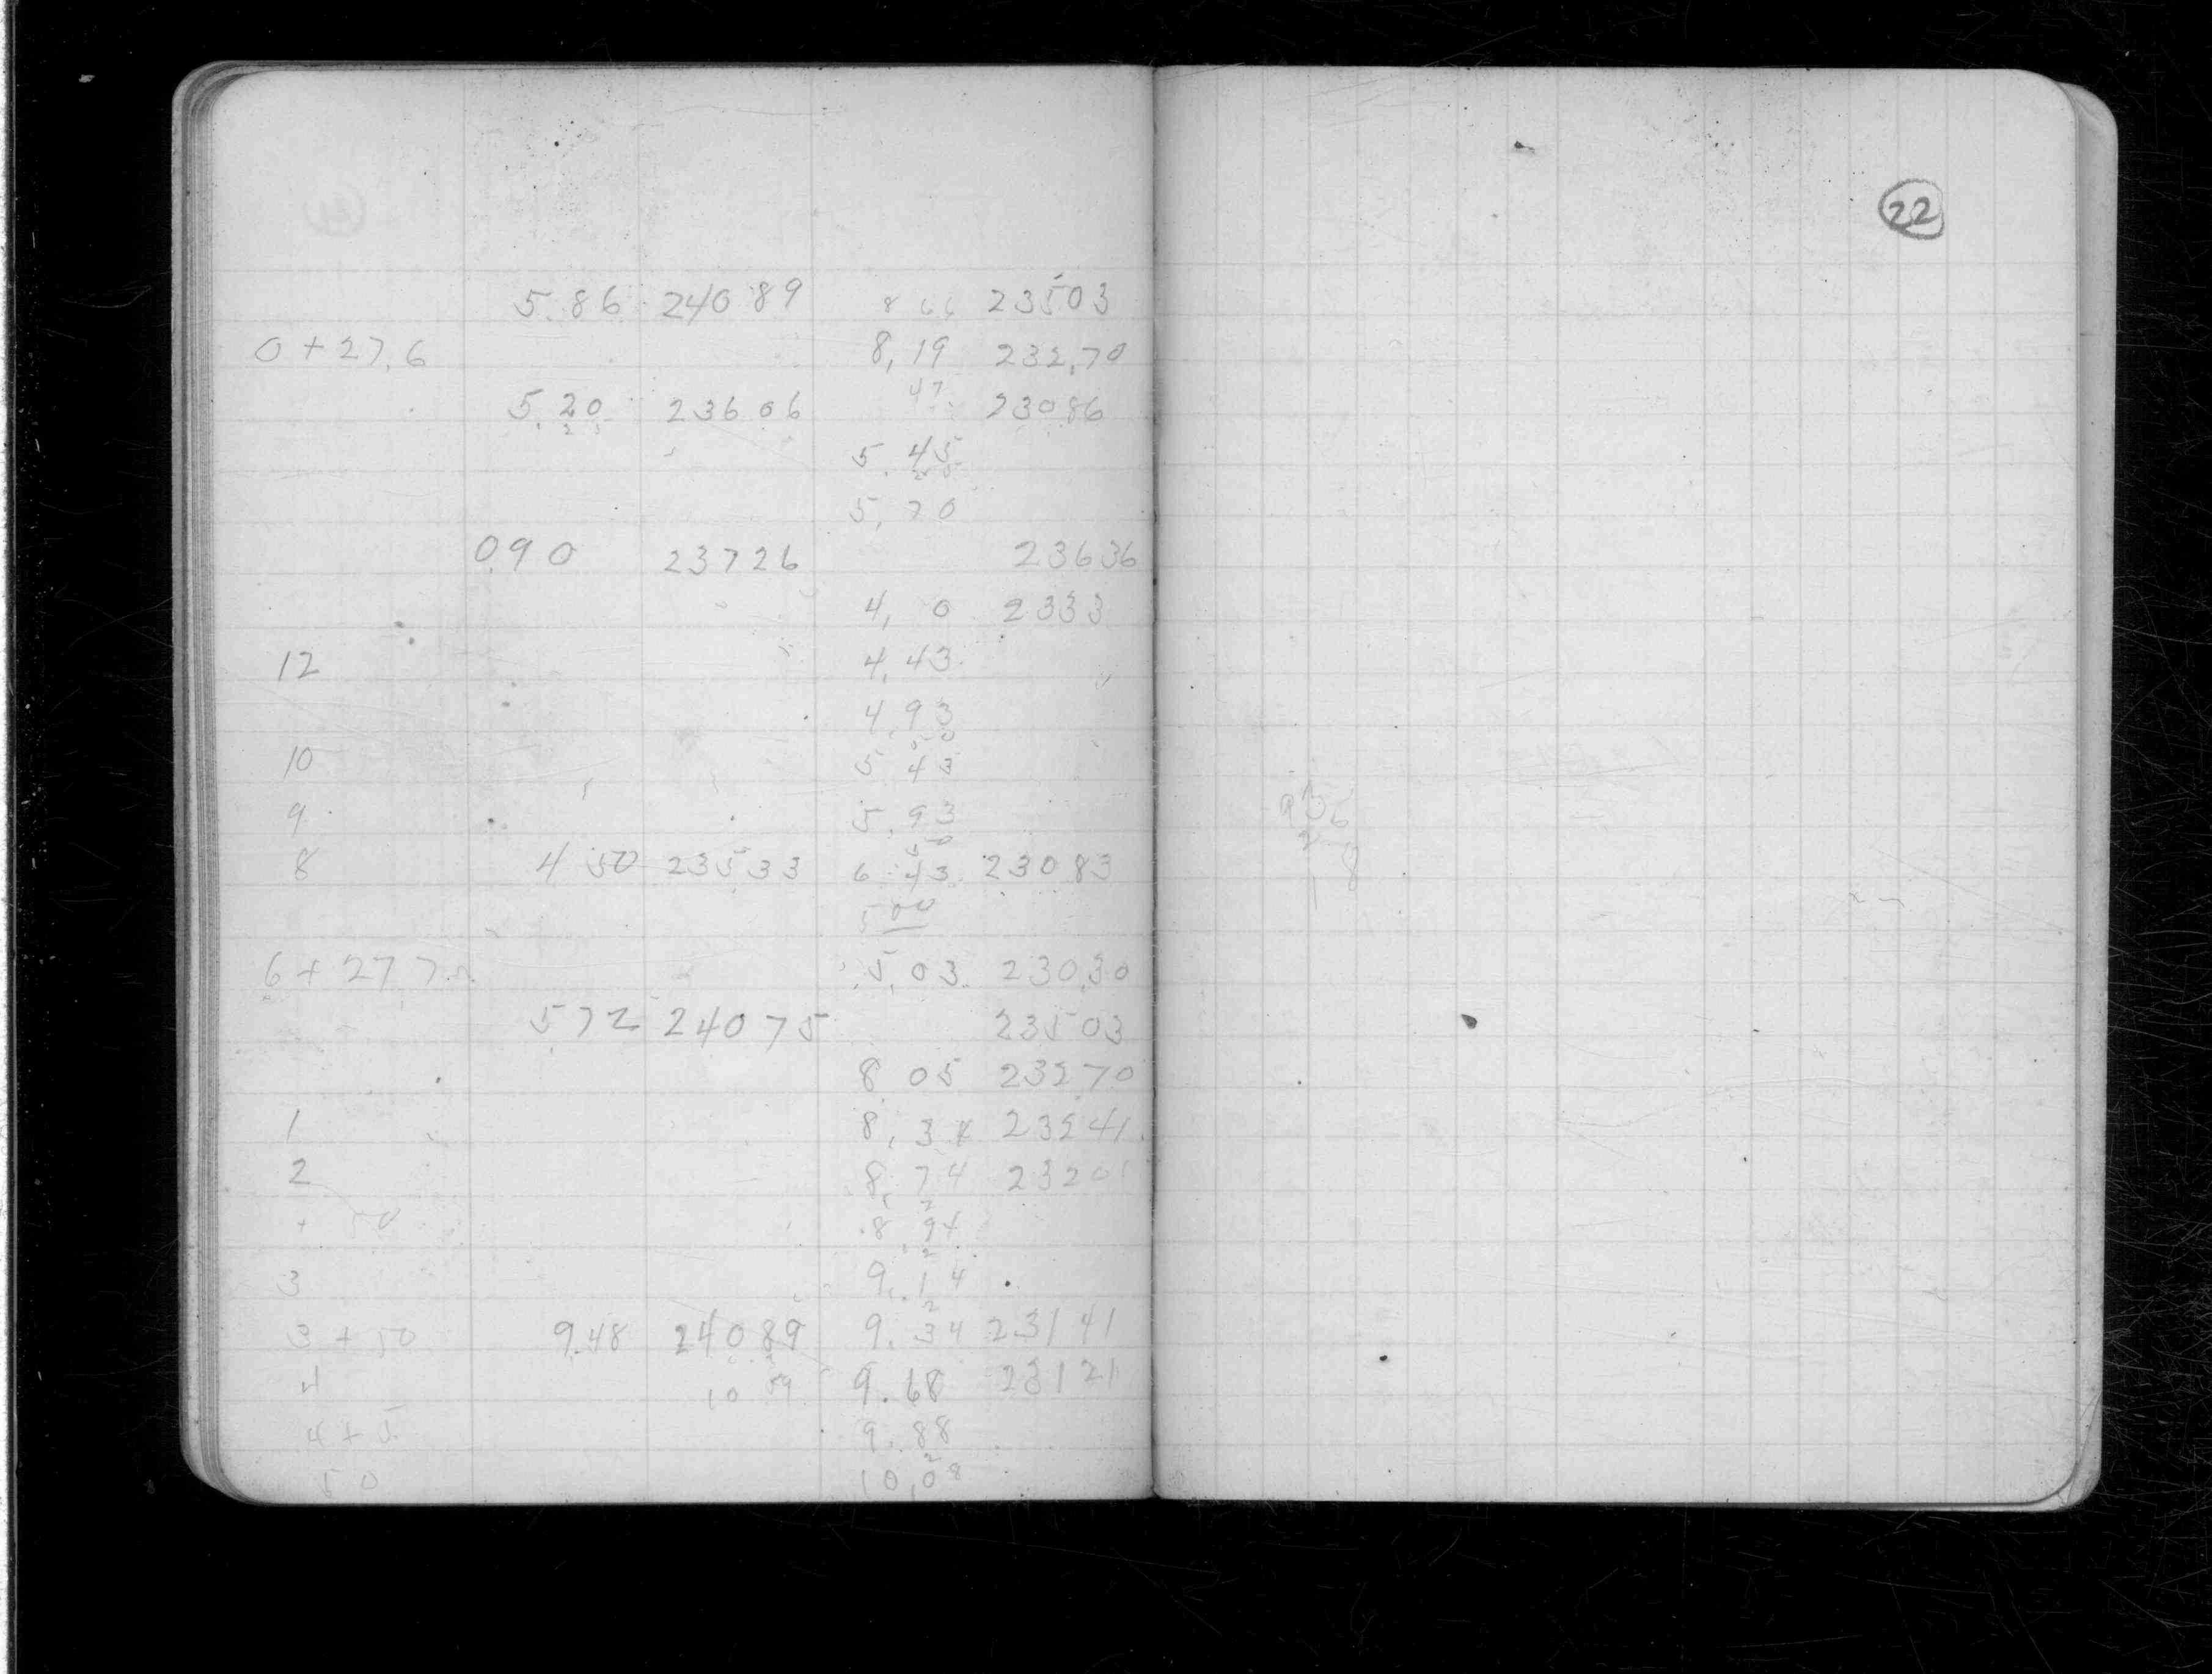 5.86 24089 8 66 23503
0+27.6 8,19 232,70
47 23086
5.20 23606
5.45
5,70
090 23726 23636
4, 0 2333
12 4,43
4,93
10 5 43
9 5.93
8 4 50 23533 6 43 23083
500
6+277 5,03 230,30
572 24075 23503
8 05 23270
1 8,34 23241
2 8,74 23201
+ 50 8 94
3 9.14
3+50 9.48 24089 9.34 23141
4 9.68 23121
4+5 9.88
50 10,08
22